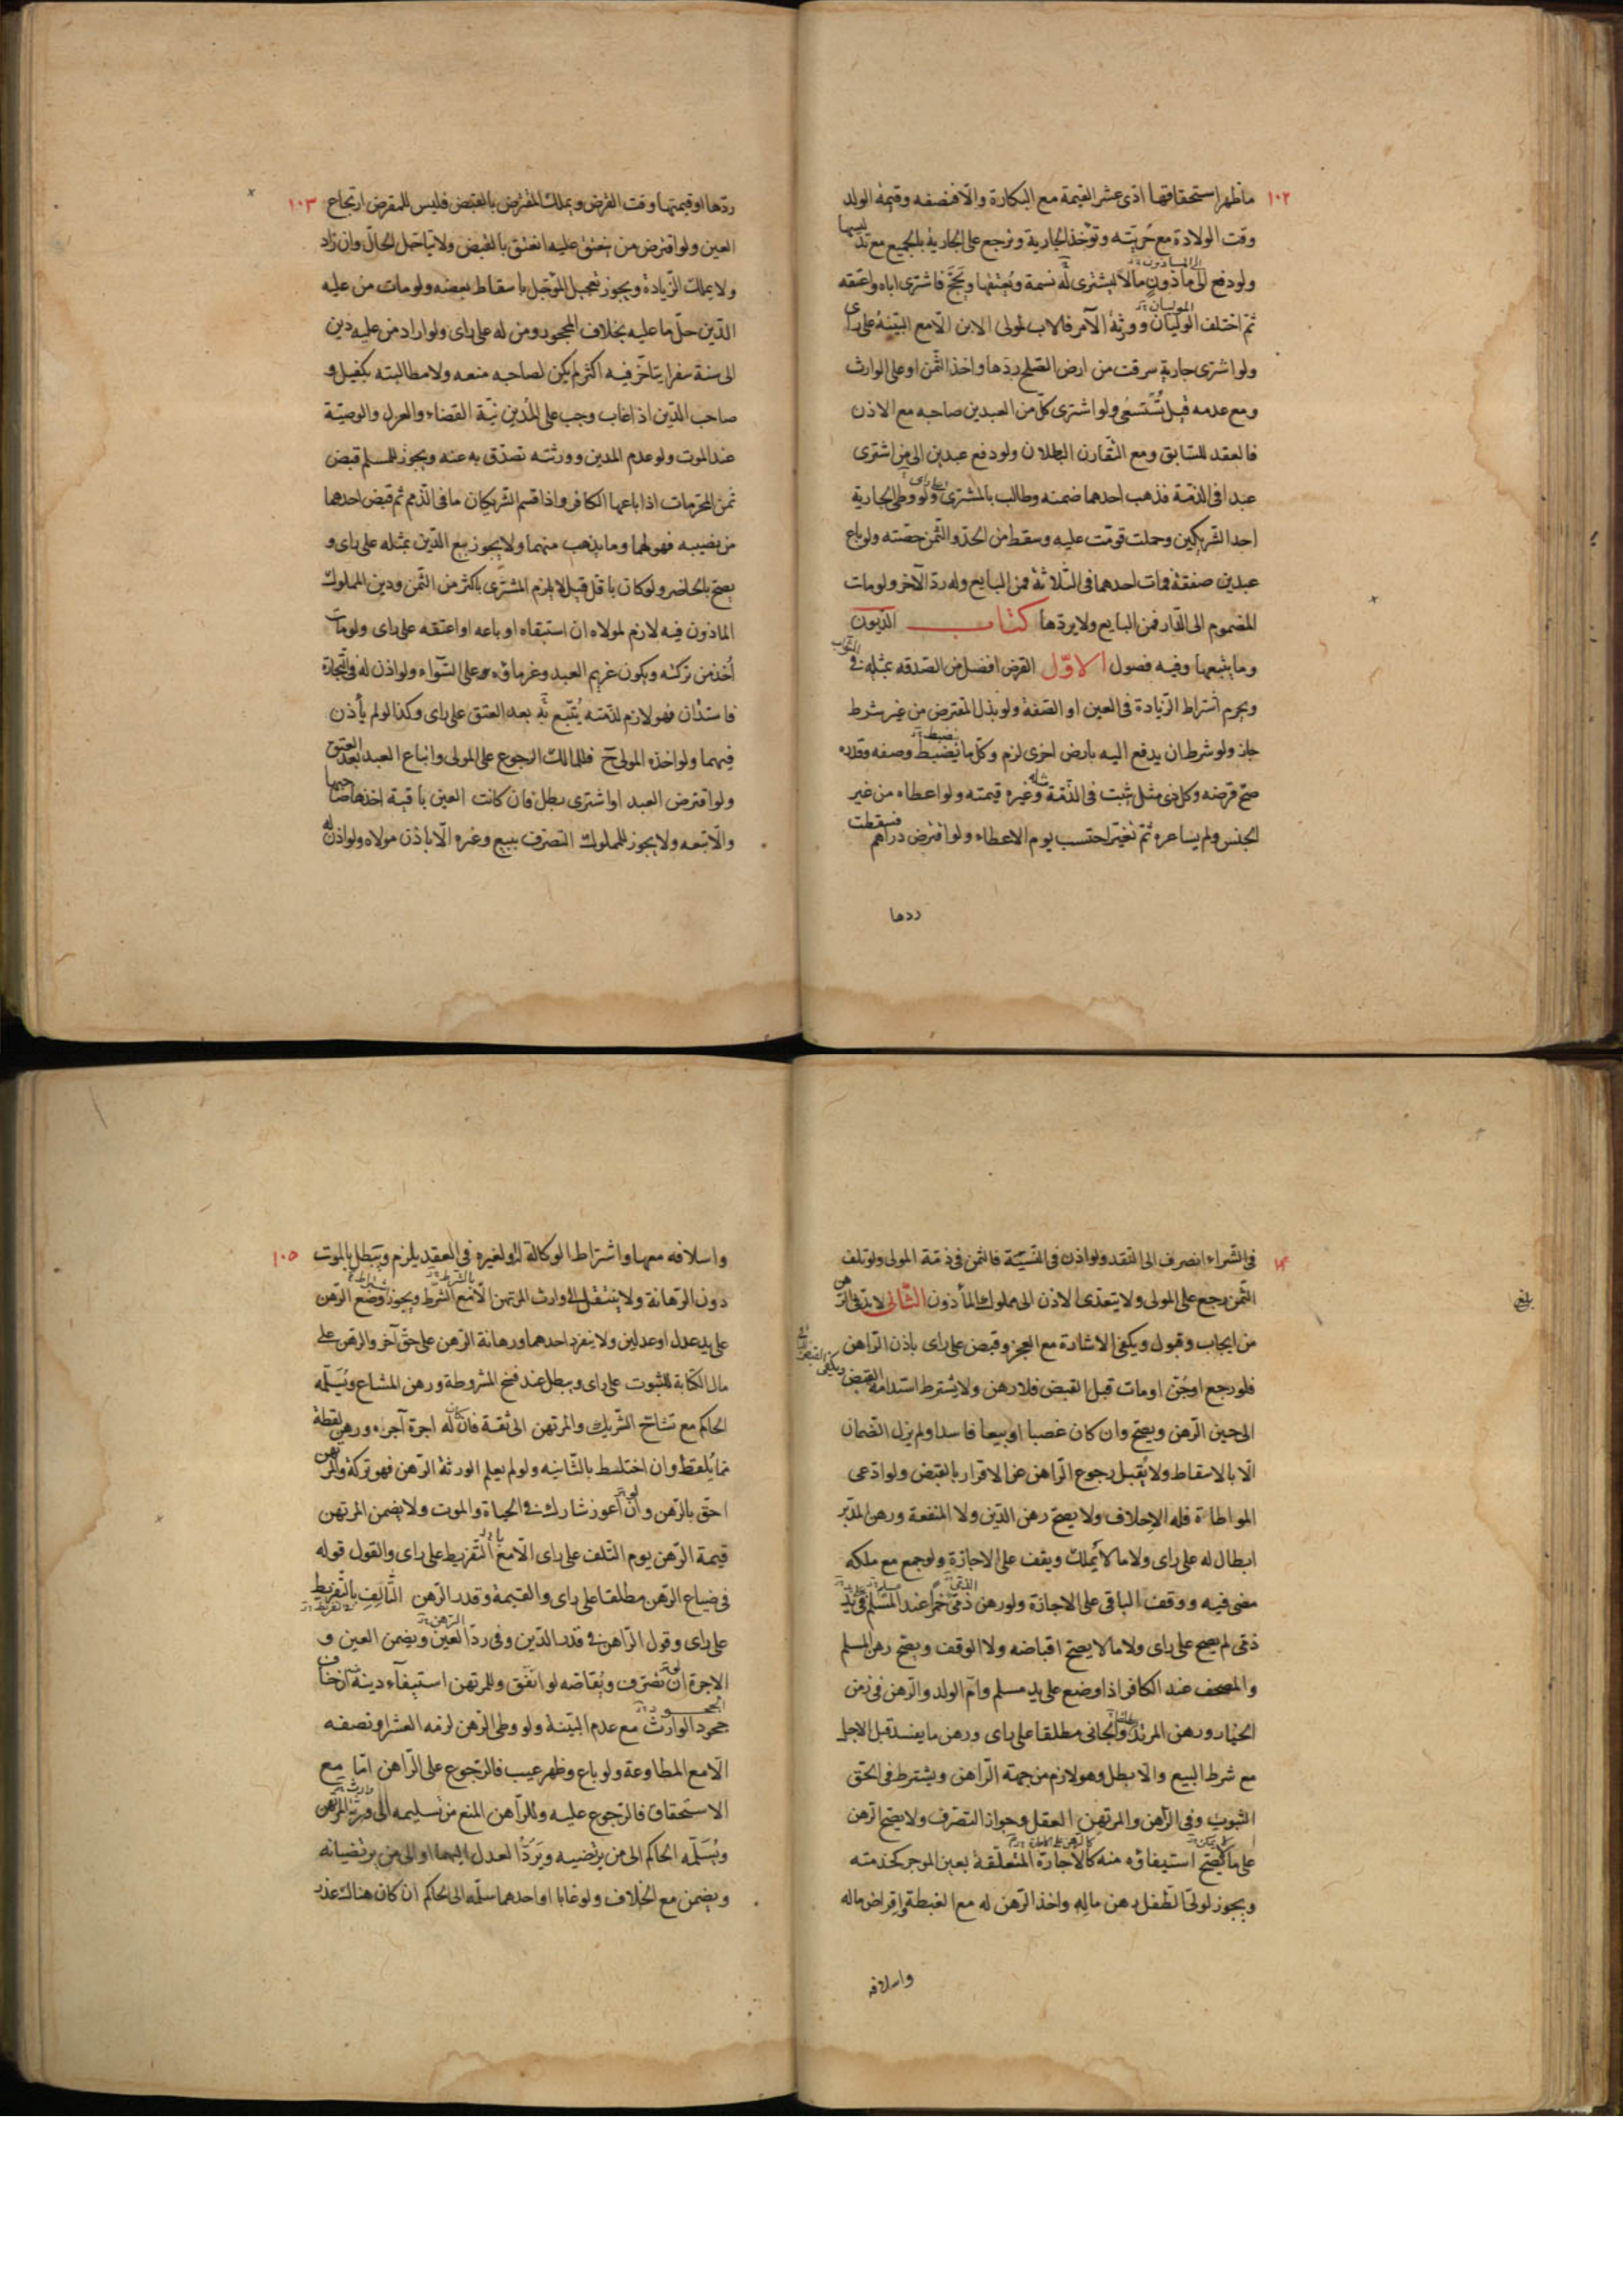 ١٠٢
فاظهر استحقاقها ادّى عشر القيمة مع البكارة والّا فنصفه وقيمة الولد
وقت الولادة مع حرّيته وتؤخذ الجارية ويرجع على الجارية بالجميع مع تدليسها
ولو دفع الى ماذون مالا ليشترى له نسمة ويعتقها ويحجّ فاشترى اباه واعتقه
ثمّ اختلف الموليان وورثة الآمر فالاب لمولى الابن الّا مع البيّنة على راى
ولو اشترى جارية سرقت من ارض الصلح ردّها واخذ الثّمن او على الوارث
ومع عدمه قيل تُستسعى ولو اشترى كلّ من العبدين صاحبه مع الاذن
فالعقد للسّابق ومع التّقارن البطلان ولو دفع عبدين الى من اشترى
عبدا فى الذمّة فذهب احدهما ضمنه وطالب بالمشترى على راى ولو وطى الجارية
احد الشّريكين وحملت قوّمت عليه وسقط من الحدّ والثّمن حصّته ولو باع
عبدين صفقة فمات احدهما فى الثّلاثة فمن البايع وله ردّ الآخر ولو مات
المضموم الى الدّار فمن البايع ولا يردّها كتاب الدّيون
وما يتبعها وفيه فصول الاوّل القرض افضل من الصّدقه بمثله فى الثواب
ويحرم اشتراط الزّيادة فى العين او الصّفة ولو بذل المقترض من غير شرط
جاز ولو شرط ان يدفع اليه بارض اخرى لزم وكلّ ما ينضبط وصفه وقدره
صحّ قرضه وكل ذى مثل يثبت فى الذّمّة مثله وغيره قيمته ولو اعطاه من غير
الجنس ولم يساعره ثمّ تغيّر احتسب يوم الاعطاء ولو اقترض دراهم فسقطت
ردها
١٠٣
ردّها او قيمتها وقت القرض ويملك المقترض بالقبض فليس للمقرض ارتجاع
العين ولو اقترض من ينعتق عليه انعتق بالقبض ولا يتاجّل الحالّ وان زاد
ولا يملك الزّيادة ويجوز تعجيل المؤجّل باسقاط بعضه ولو مات من عليه
الدّين حلّ ما عليه بخلاف المحجور ومن له على راى ولو اراد من عليه دين
الى سنة سفرا يتاخّر فيه اكثر لم يكن لصاحبه منعه ولا مطالبته بكفيل و
صاحب الدّين اذا غاب وجب على المدين نيّة القضاء والعزل والوصيّة
عند الموت ولو عدم المدين وورثته تصدّق به عنه ويجوز للمسلم قبض
ثمن المحرّمات اذا باعها الكافر واذا قسم الشّريكان ما فى الذّمم ثم قبض احدهما
من نصيبه فهو لهما وما يذهب منهما ولا يجوز بيع الدّين بمثله على راى و
يصحّ بالحاضر ولو كان باقلّ قيل لا يلزم المشترى باكثر من الثّمن ودين المملوك
الماذون فيه لازم لمولاه ان استبقاه او باعه او اعتقه على راى ولو مات
أخذ من تركته ويكون غريم العبد وغرماؤه على السّواء ولو اذن له فى التّجارة
فاستدان فهو لازم لذمّته يُتّبع به بعد العتق على راى وكذا لو لم يأذن
فيهما ولو اخذه المولى ح فللمالك الرجوع على المولى واتباع العبد بعد العتق
ولو اقترض العبد او اشترى بطل فان كانت العين باقية اخذها صاحبها
والّا تبعه ولا يجوز للمملوك التصرّف ببيع وغيره الّا باذن مولاه ولو اذن له
فى الشّراء انصرف الى النقد ولو اذن فى النّسيئة فالثمن فى ذمّة المولى ولو تلف
الثّمن رجع على المولى ولا يتعدّى الاذن الى مملوك المأذون الثّانى لا بدّ فى الرهن
من ايجاب وقبول ويكفى الاشارة مع العجز وقبض على راى باذن الرّاهن
فلو رجع او جُنّ او مات قبل القبض فلا رهن ولا يشترط استدامة القبض
الى حين الرّهن ويصحّ وان كان غصبا او بيعا فاسدا ولم يزل الضّمان
الّا بالاسقاط ولا يُقبل رجوع الرّاهن عن الاقرار بالقبض ولو ادّعى
المواطاة فله الاحلاف ولا يصحّ رهن الدّين ولا المنفعة ورهن المدبّر
ابطال له على راى ولا ما لا يُملك ويقف على الاجازة ولو جمع مع ملكه
مضى فيه ووقف الباقى على الاجازة ولو رهن ذمّى خمرا عند المسلم فى يد
ذمّى لم يصح على راى ولا ما لا يصحّ اقباضه ولا الوقف ويصحّ رهن المسلم
والمصحف عند الكافر اذا وضع على يد مسلم وامّ الولد والرّهن فى زمن
الخيار ورهن المرتدّ والجانى مطلقا على راى ورهن ما يفسد قبل الاجل
مع شرط البيع والّا بطل وهو لازم من جهة الرّاهن ويشترط فى الحقّ
الثبوت وفى الرّاهن والمرتهن العقل وجواز التصرّف ولا يصحّ الرّهن
على ما لا يصحّ استيفاؤه منه كالاجارة المتعلّقة بعين الموجر كخدمته
ويجوز لولىّ الطّفل رهن ماله واخذ الرّهن له مع الغبطة واقراض ماله
واسلافه
بلغ
١٠٥
واسلافه معها واشتراط الوكالة له ولغيره فى العقد يلزم ويبطل بالموت
دون الرّهانة ولا ينتقل الى وارث المرتهن الّا مع الشرط ويجوز وضع الرّهن
على يد عدل او عدلين ولا ينفرد احدهما ورهانة الرّهن على حقّ آخر والرّهن على
مال الكتابة للثبوت على راى ويبطل عند فسخ المشروطة ورهن المشاع ويُسلّمه
الحاكم مع تشاحّ الشّريك والمرتهن الى ثقة فان كان له اجرة آجره ورهن لقطة
ممّا يُلقط وان اختلط بالثّانيه ولو لم يعلم الورثة الرّهن فهو تركة والمرتهن
احقّ بالرّهن وان اعوز شارك فى الحياة والموت ولا يضمن المرتهن
قيمة الرّهن يوم التّلف على راى الّا مع التّفريط على راى والقول قوله
فى ضياع الرّهن مطلقا على راى والقيمة وقدر الرّهن التّالف بالتّفريط
على راى وقول الرّاهن فى قدر الدّين وفى ردّ العين ويضمن العين و
الاجرة ان تصرّف ويُقاصّه لو انفق وللمرتهن استيفآء دينه ان خاف
جحود الوارث مع عدم البيّنة ولو وطى الرّهن لزمه العشر او نصفه
الّا مع المطاوعة ولو باع وظهر عيب فالرّجوع على الرّاهن امّا مع
الاستحقاق فالرّجوع عليه وللرّاهن المنع من تسليمه الى ورثة المرتهن
ويُسَلّمه الحاكم الى من يرتضيه ويَرُدّ العدل اليهما او الى من يرتضيانه
ويضمن مع الخلاف ولو غابا او احدهما سلّمه الى الحاكم ان كان هناك عذر